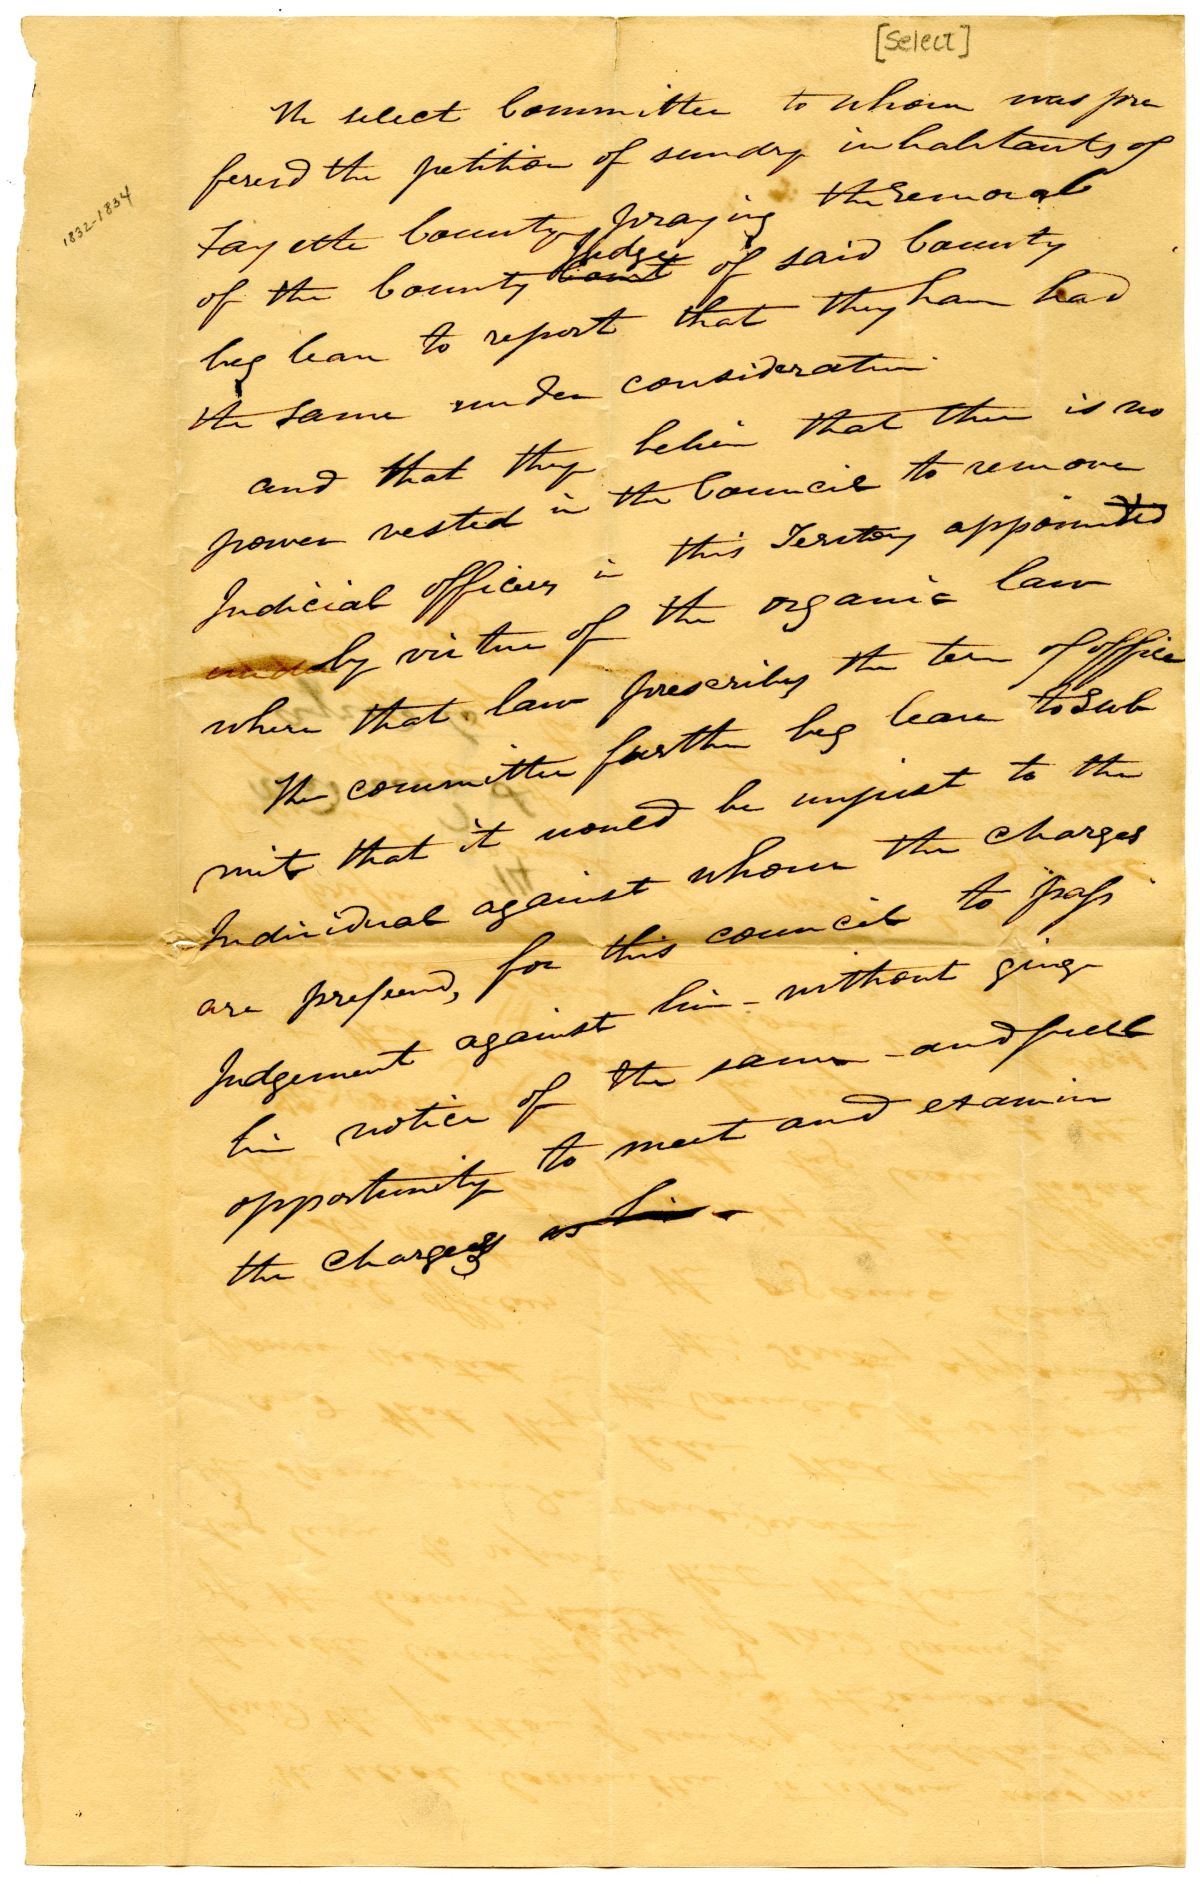 [Select]
1832-1834
The select Committee to whom was pre
fered the petition of sundry inhabitants of
Fayette County, praying the removal
Judge
of the County Court of said County
beg leave to report that they have had
the same under consideration
and that they believe that there is no
power vested in the Council to remove
Judicial officers in this Territory appointed
by virtue of the organic law
where that law prescribes the term of office
The committee further beg leave to sub
mit that it would be unjust to the
Individual against whom the charges
are prefered, for this council to pass
Judgement against him - without giving
him notice of the same - and full
opportunity to meet and examine
the charges as him -